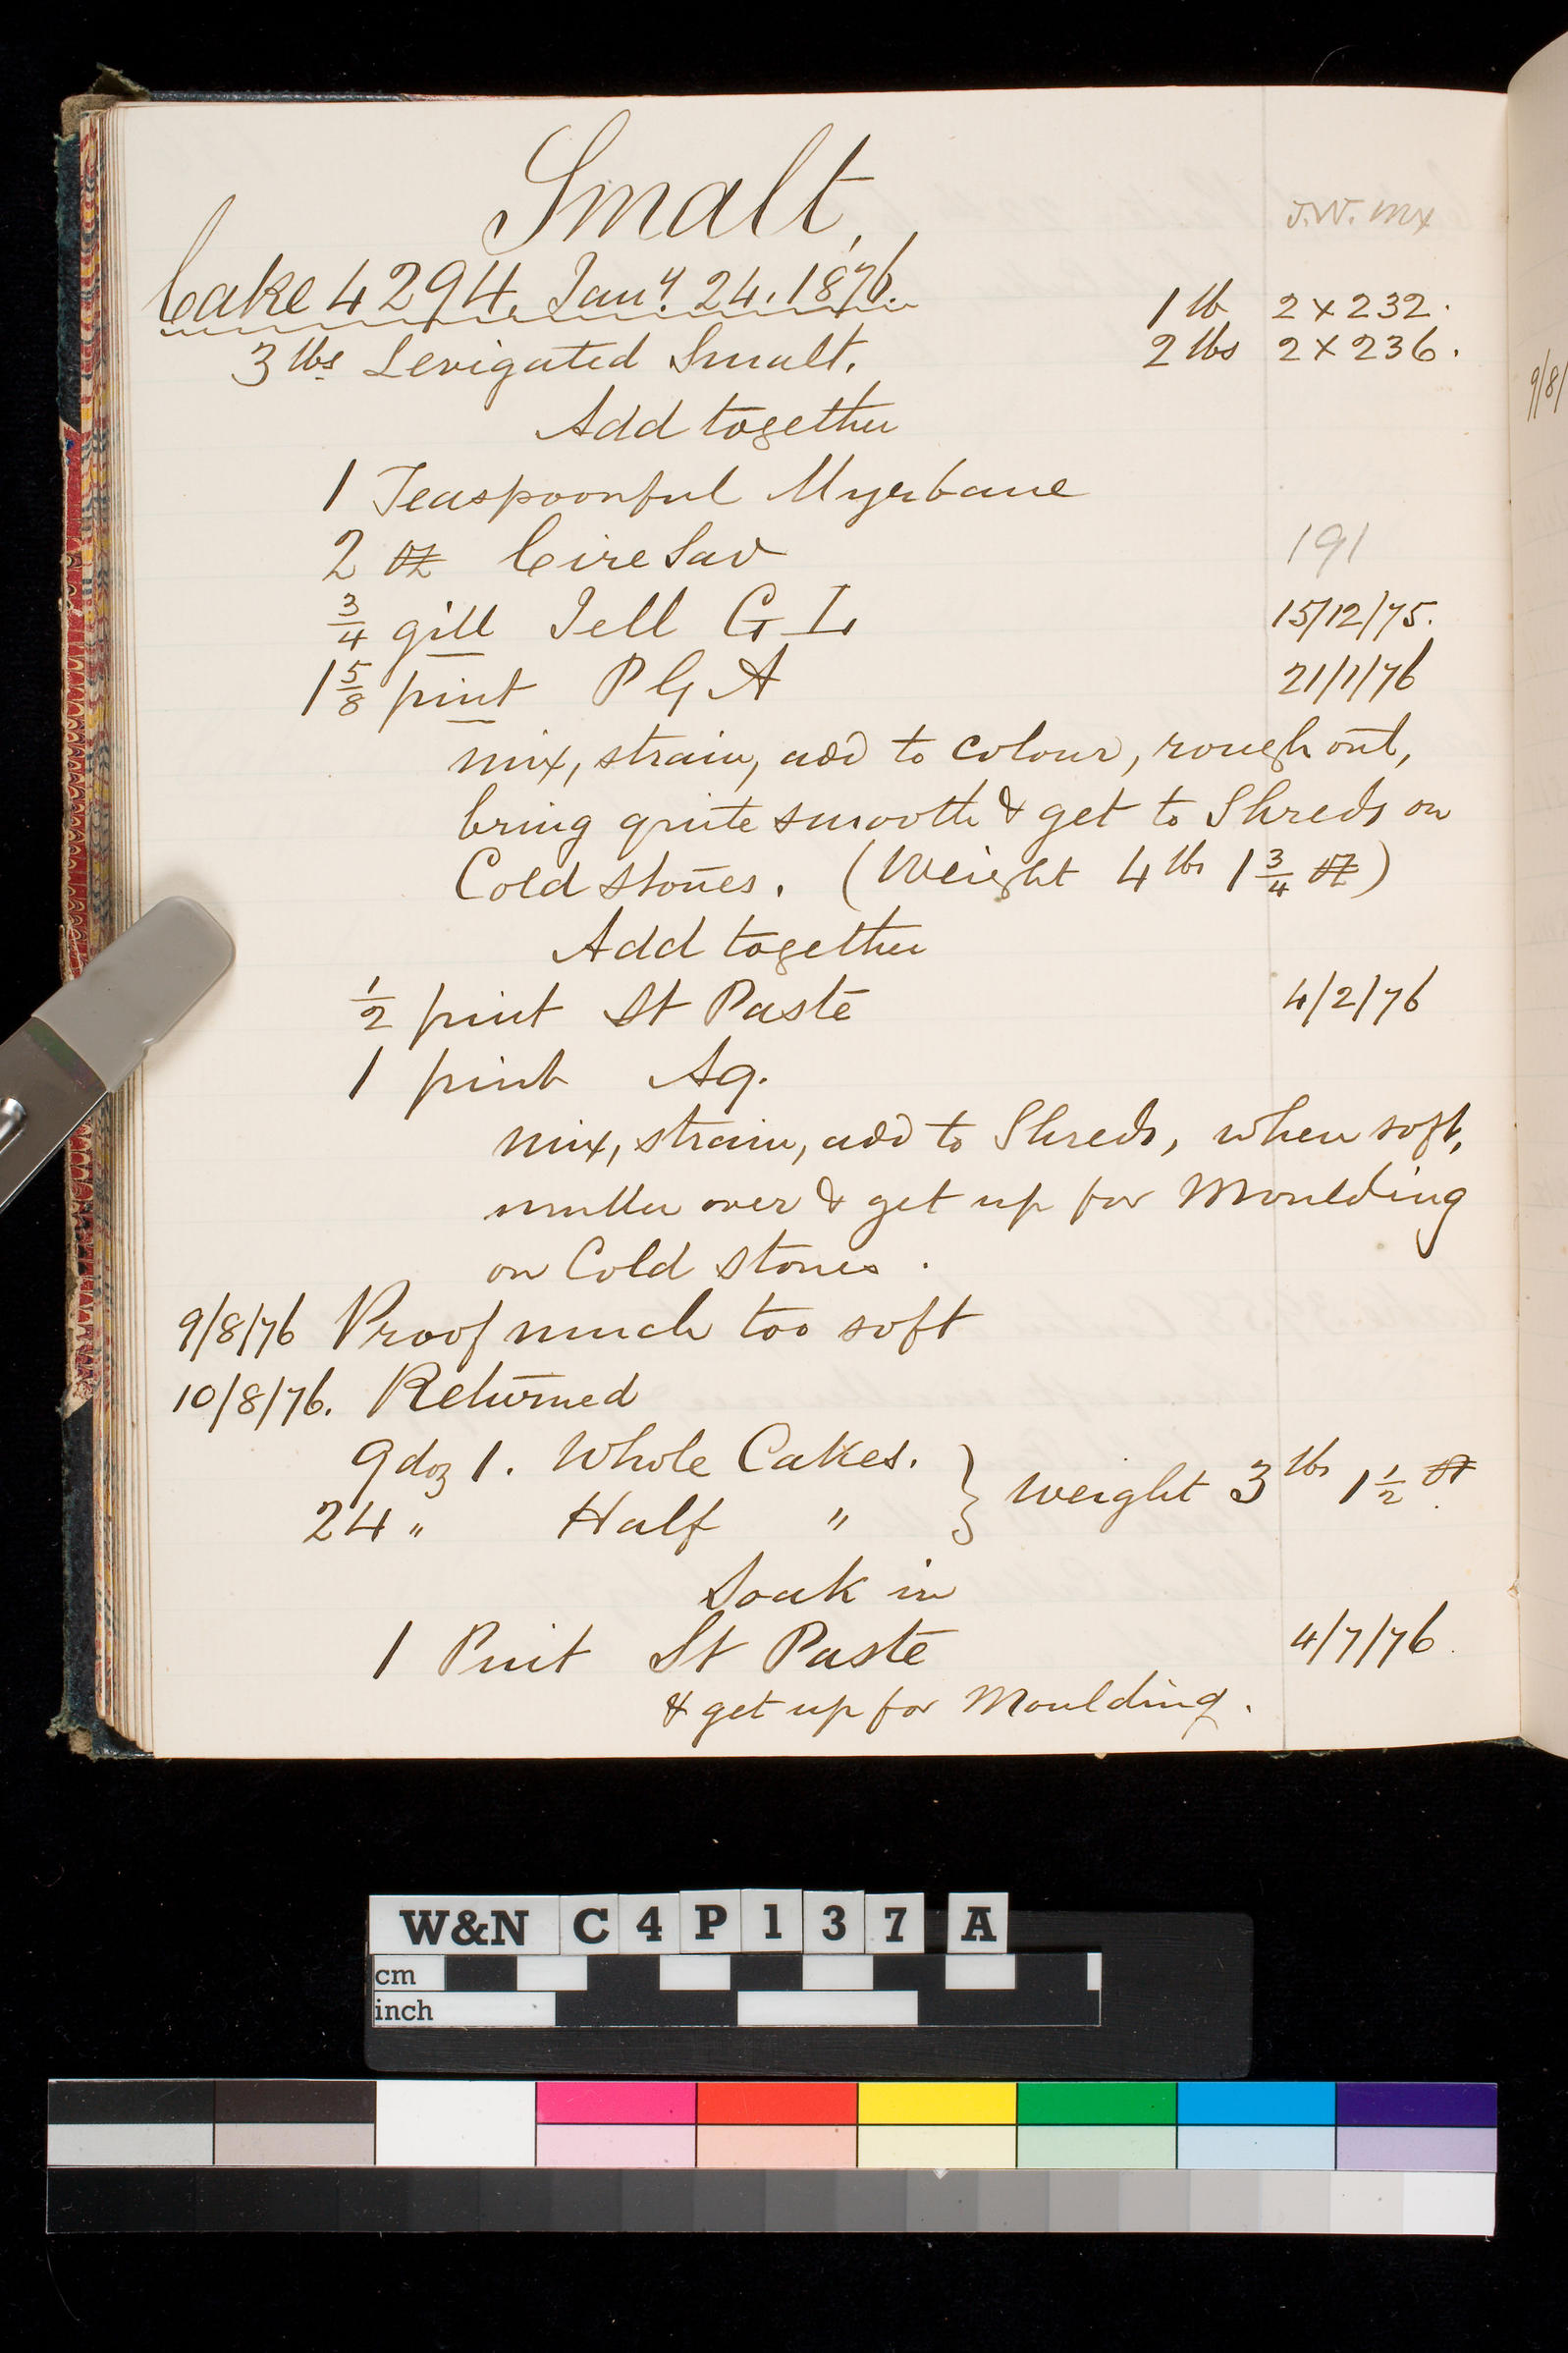 Smalt,
J.W. Mx
Cake 4294. Jany. 24. 1876.
1 lb 2 x 232.
3 lbs Levigated Smalt. 2 lbs 2 x 236.
Add together
1 Teaspoonful Myrbane
2 oz Cire Sav 191
3/4 gill Jell G L. 15/12/75.
1 5/8 pint P G A 21/1/76
mix, strain, add to colour, rough out,
bring quite smooth & get to Shreds on
Cold stones. (Weight 4 lbs 1 3/4 oz)
Add together
1/2 pint St Paste 4/2/76
1 pint Aq.
mix, strain, add to Shreds, when soft,
muller over & get up for Moulding
on Cold stones.
9/8/76 Proof much too soft
10/8/76. Returned
9 doz 1. Whole Cakes.
24 " Half " } weight 3 lbs 1 1/2 oz.
Soak in
1 Pint St Paste 4/7/76.
& get up for Moulding.
9/8/
W&N C 4 P 1 3 7 A
cm
inch